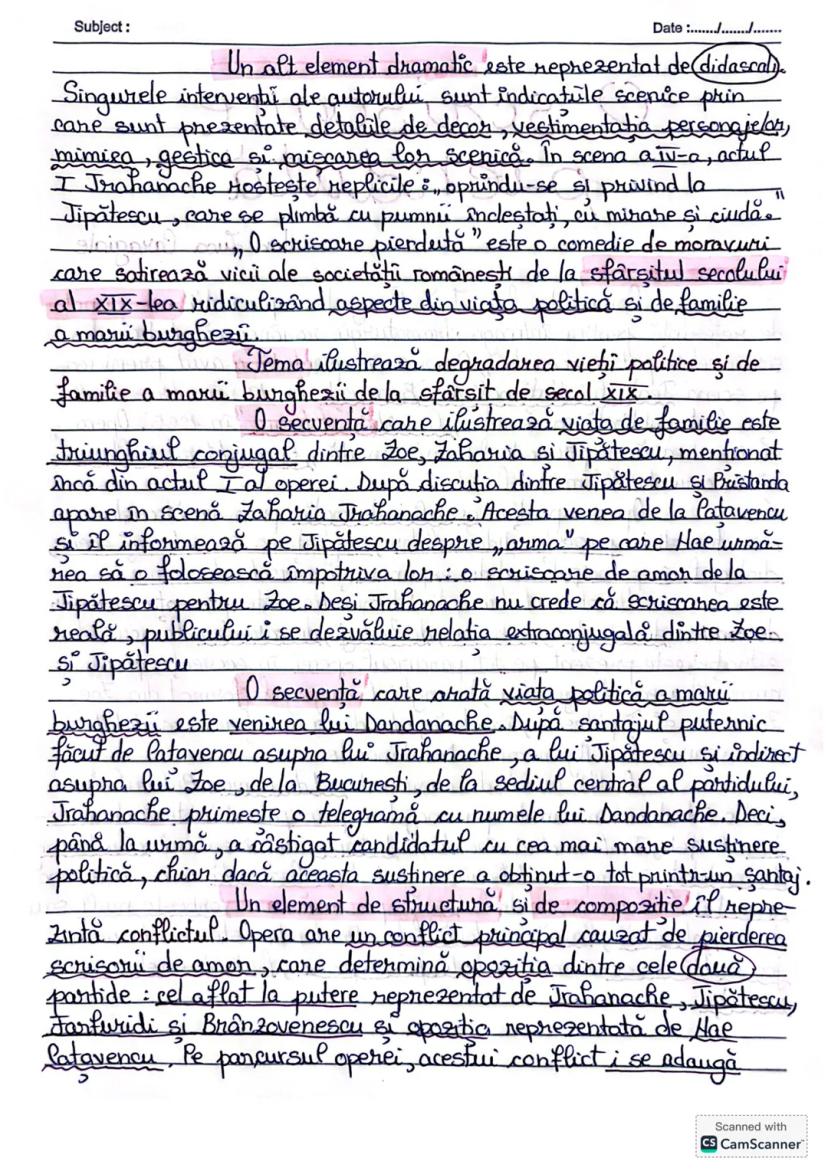 Subject :
Date :......./......./.......
Un alt element dramatic este reprezentat de didascalii.
Singurele intervenții ale autorului, sunt indicațiile scenice prin
care sunt prezentate detaliile de decor, vestimentația personajelor,
mimica, gestica și mișcarea lor scenică. În scena a IV-a, actul
I Trahanache rostește replicile: „oprindu-se și privind la
Tipătescu, care se plimbă cu pumnii încleștați, cu mirare și ciudă."
„O scrisoare pierdută" este o comedie de moravuri
care satirează vicii ale societății românești de la sfârșitul secolului
al XIX-lea ridiculizând aspecte din viața politică și de familie
a marii burghezii.
Tema ilustrează degradarea vieți politice și de
familie a marii burghezii de la sfârsit de secol XIX.
O secvență care ilustrează viața de familie este
triunghiul conjugal dintre Zoe, Zaharia și Tipătescu, menționat
încă din actul I al operei. După discuția dintre Tipătescu și Pristanda
apare în scenă Zaharia Trahanache. Acesta venea de la Cațavencu
și îl informează pe Tipătescu despre „arma" pe care Nae urmă-
rea să o folosească împotriva lor: o scrisoare de amor de la
Tipătescu pentru Zoe. Deși Trahanache nu crede că scrisoarea este
reală, publicului i se dezvăluie relația extraconjugală dintre Zoe
și Tipătescu
O secvență care arată viața politică a marii
burghezii este venirea lui Dandanache. După șantajul puternic
făcut de Cațavencu asupra lui Trahanache, a lui Tipătescu și indirect
asupra lui Zoe, de la București, de la sediul central al partidului,
Trahanache primește o telegramă cu numele lui Dandanache. Deci,
până la urmă, a câștigat candidatul cu cea mai mare susținere
politică, chiar dacă aceasta susținere a obținut-o tot printr-un șantaj.
Un element de structură și de compoziție îl repre-
zintă conflictul. Opera are un conflict principal cauzat de pierderea
scrisorii de amor, care determină opoziția dintre cele două
partide: cel aflat la putere reprezentat de Trahanache, Tipătescu,
Farfuridi și Brânzovenescu și opoziția reprezentată de Nae
Cațavencu. Pe parcursul operei, acestui conflict i se adaugă
Scanned with
CS CamScanner